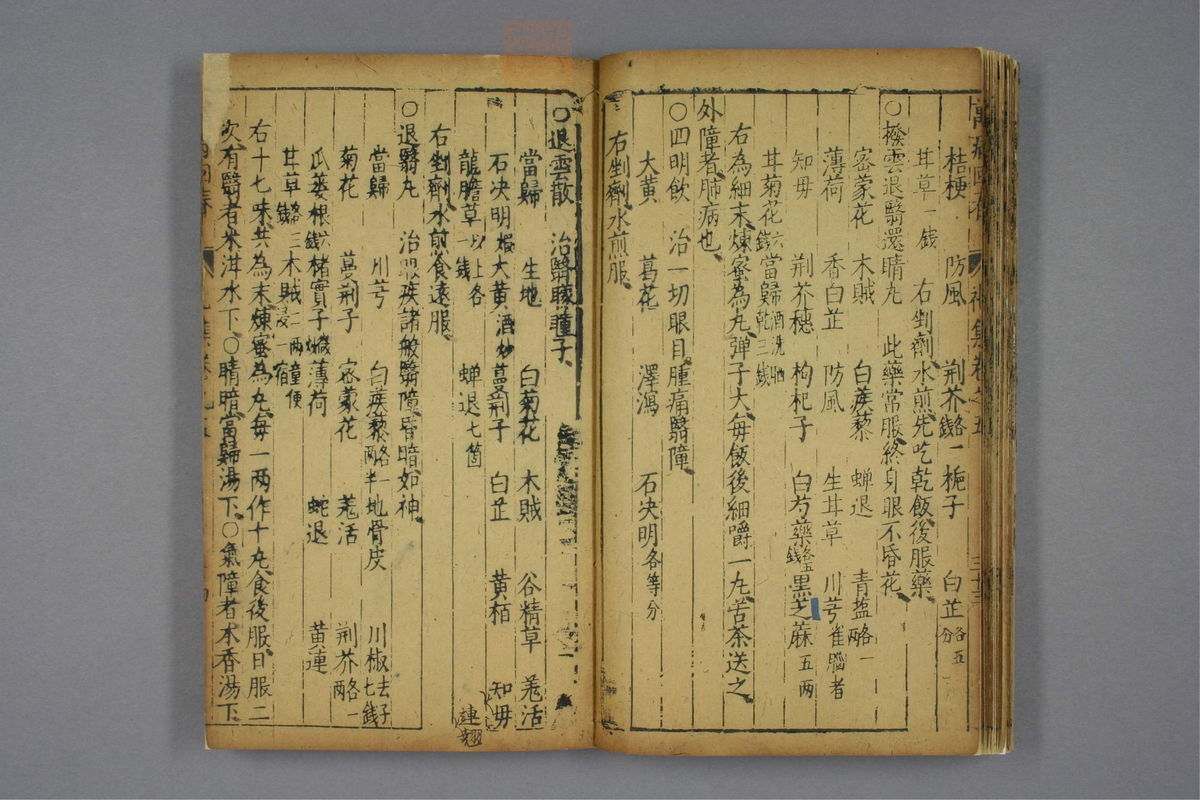 桔梗 防風 荆芥各一錢 梔子 白芷各五分
甘草一錢 右剉劑水煎先吃乾飯後服藥
○撥雲退翳還睛丸 此藥常服終身眼不昏花
密蒙花 木賊 白蒺藜 蟬退 青盐各一兩
薄荷 香白芷 防風 生甘草 川芎雀腦者
知母 荆芥穗 枸杞子 白芍藥各五錢 黒芝蔴五兩
甘菊花六錢 當歸酒洗晒乾三錢
右為細末煉蜜為丸弹子大每飯後細嚼一丸苦茶送之
外障者肺病也
○四明飲 治一切眼目腫痛翳障
大黄 葛花 澤瀉 石决明各等分
右剉劑水煎服
○退雲散 治翳矇瞳子
當歸 生地 白菊花 木賊 谷精草 羗活
石决明煅 大黄酒炒 蔓荆子 白芷 黄栢 知母 連翹
龍膽草以上各一錢 蝉退七箇
右剉劑水煎食遠服
○退翳丸 治眼疾諸般翳障昏暗如神
當歸 川芎 白蒺藜各一兩半 地骨皮 川椒去子七錢
菊花 蔓荆子 密蒙花 羗活 荆芥各一兩
瓜蔞根六錢 楮實子 薄荷 蛇退 黄連
甘草各三錢 木賊一兩童便浸一宿
右十七味共為末煉蜜為丸每一兩作十丸食後服日服二
次有翳者米泔水下○睛暗當歸湯下○氣障者木香湯下